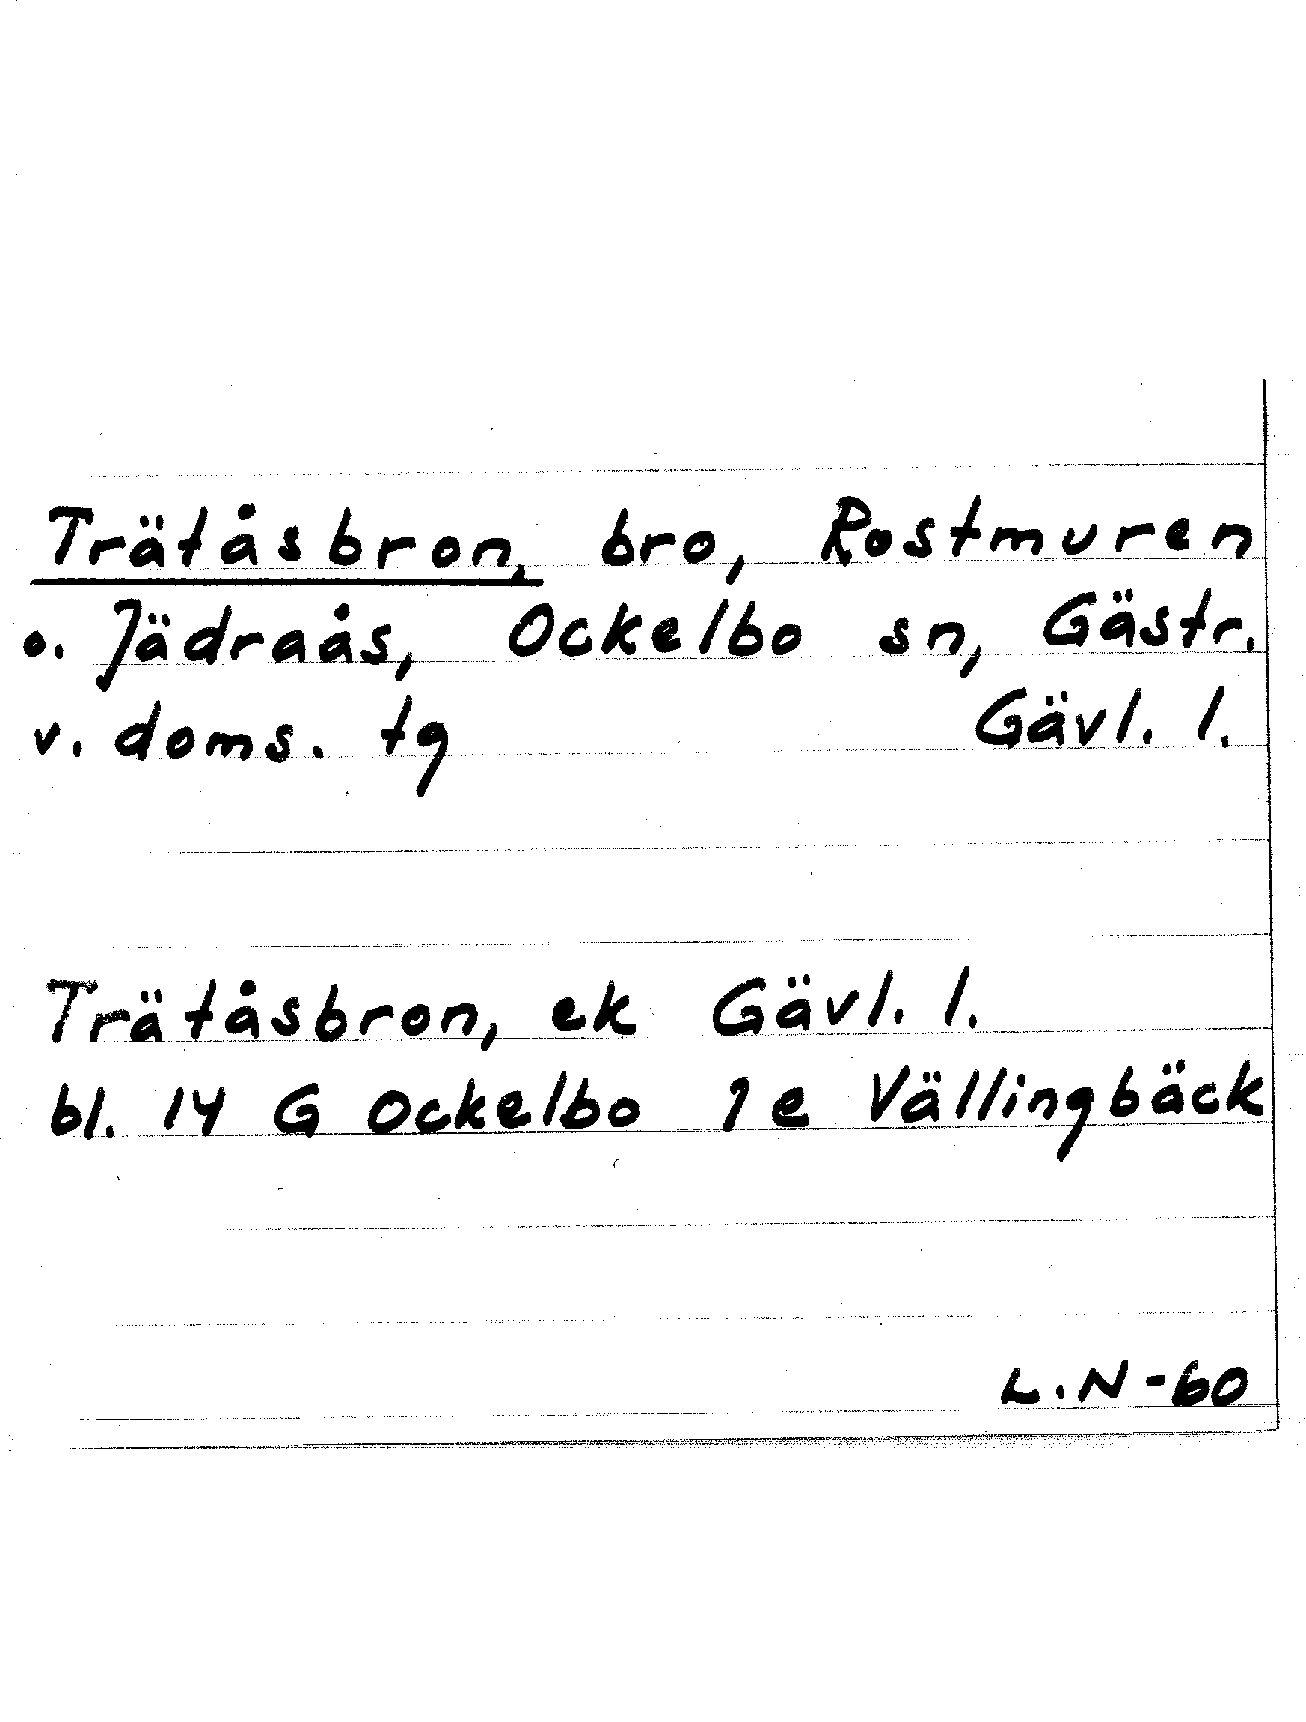 Trätåsbron, bro, Rostmuren
o. Jädraås, Ockelbo sn, Gästr.
v. doms. tg Gävl. l.
Trätåsbron, ek Gävl. l.
bl. 14 G Ockelbo 1 e Vällingbäck
L.N-60